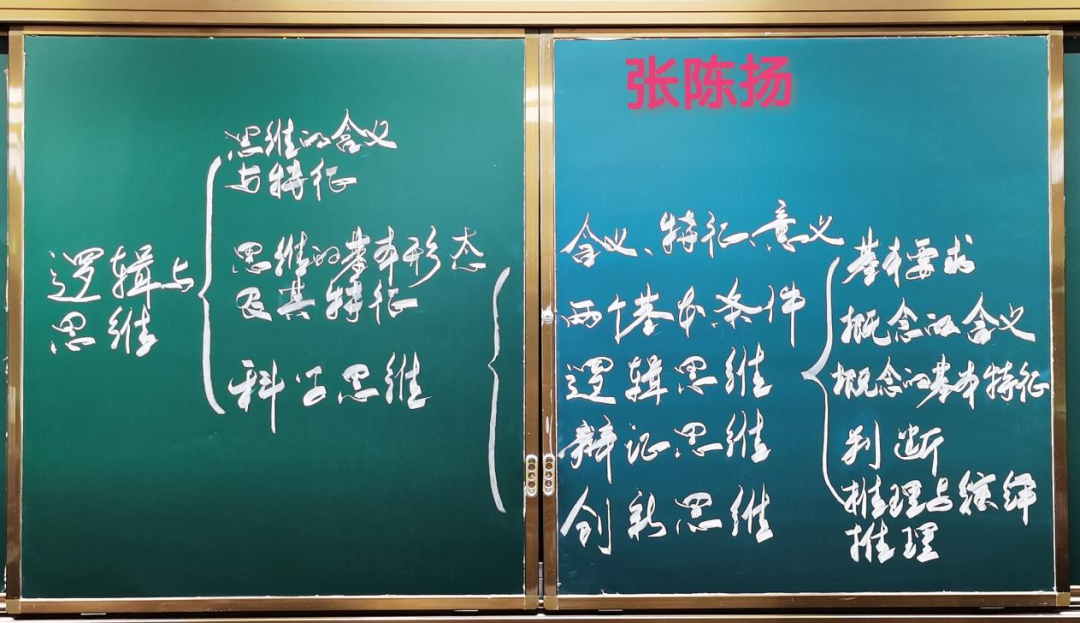 张陈扬
逻辑与
思维
思维的含义
与特征
思维的基本形态
及其特征
科学思维
含义、特征、意义
两个基本条件
逻辑思维
辩证思维
创新思维
基本要求
概念的含义
概念的基本特征
判断
推理与演绎
推理